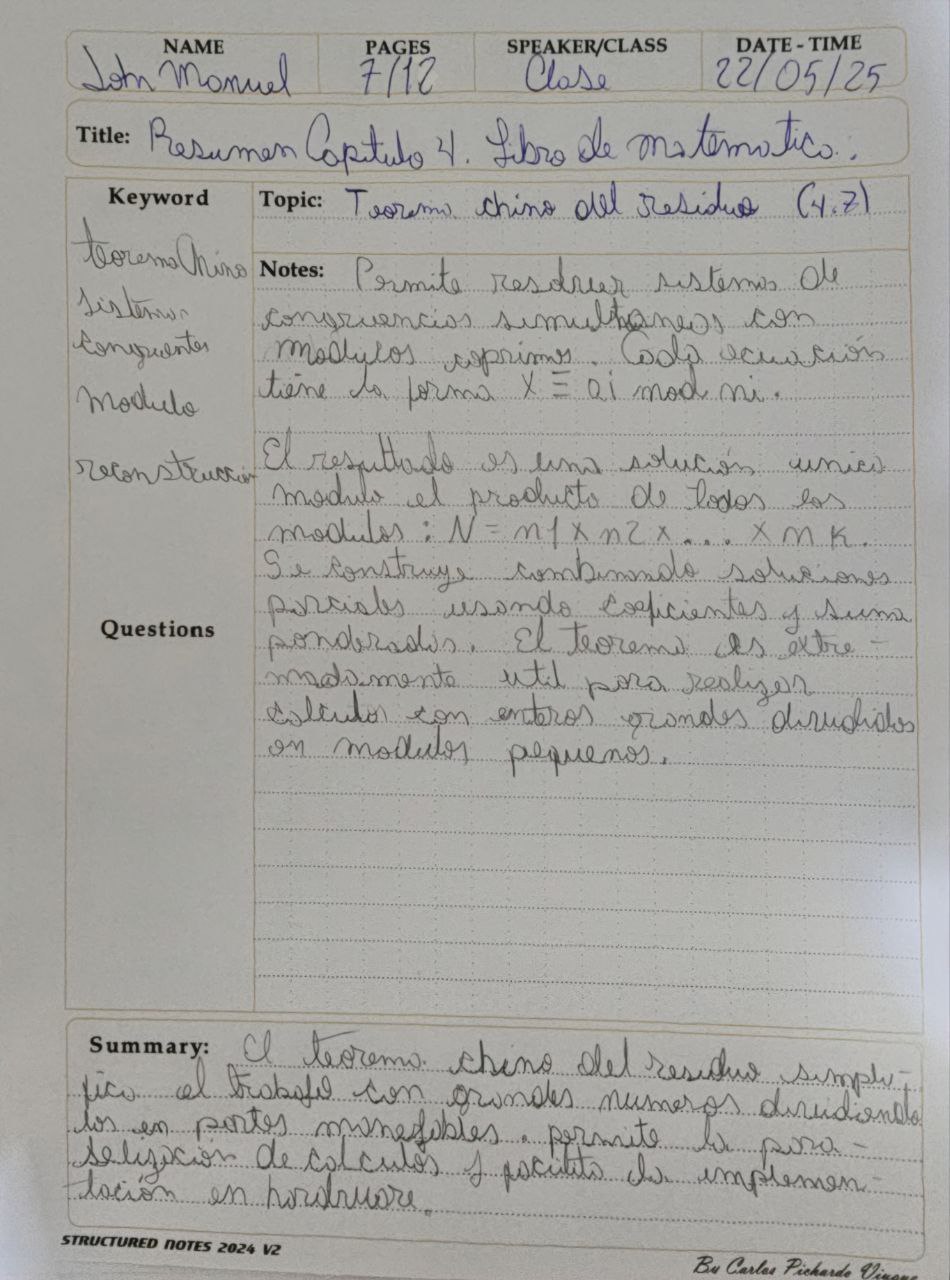 NAME PAGES SPEAKER/CLASS DATE - TIME
John Manuel 7/12 Clase 22/05/25
Title: Resumen Capitulo 4. Libro de matematica.
Keyword
Topic: Teorema chino del residuo (4.7)
teorema chino
sistemas
congruentes
Modulo
reconstruccion
Notes: Permite resolver sistemas de
congruencias simultaneas con
modulos coprimos. Cada ecuación
tiene la forma X ≡ ai mod ni.
El resultado es una solución unica
modulo el producto de todos los
modulos: N = n1 x n2 x ... x nk.
Se construye combinando soluciones
parciales usando coeficientes y suma
ponderadas. El teorema es extre-
madamente util para realizar
calculos con enteros grandes divididos
en modulos pequenos.
Questions
Summary: El teorema chino del residuo simpli-
fica el trabajo con grandes numeros dividiendo
los en partes manejables. permite la para-
lelizacion de calculos y facilita la implemen-
tación en hardware.
STRUCTURED NOTES 2024 V2
By Carlos Pichardo Viuque